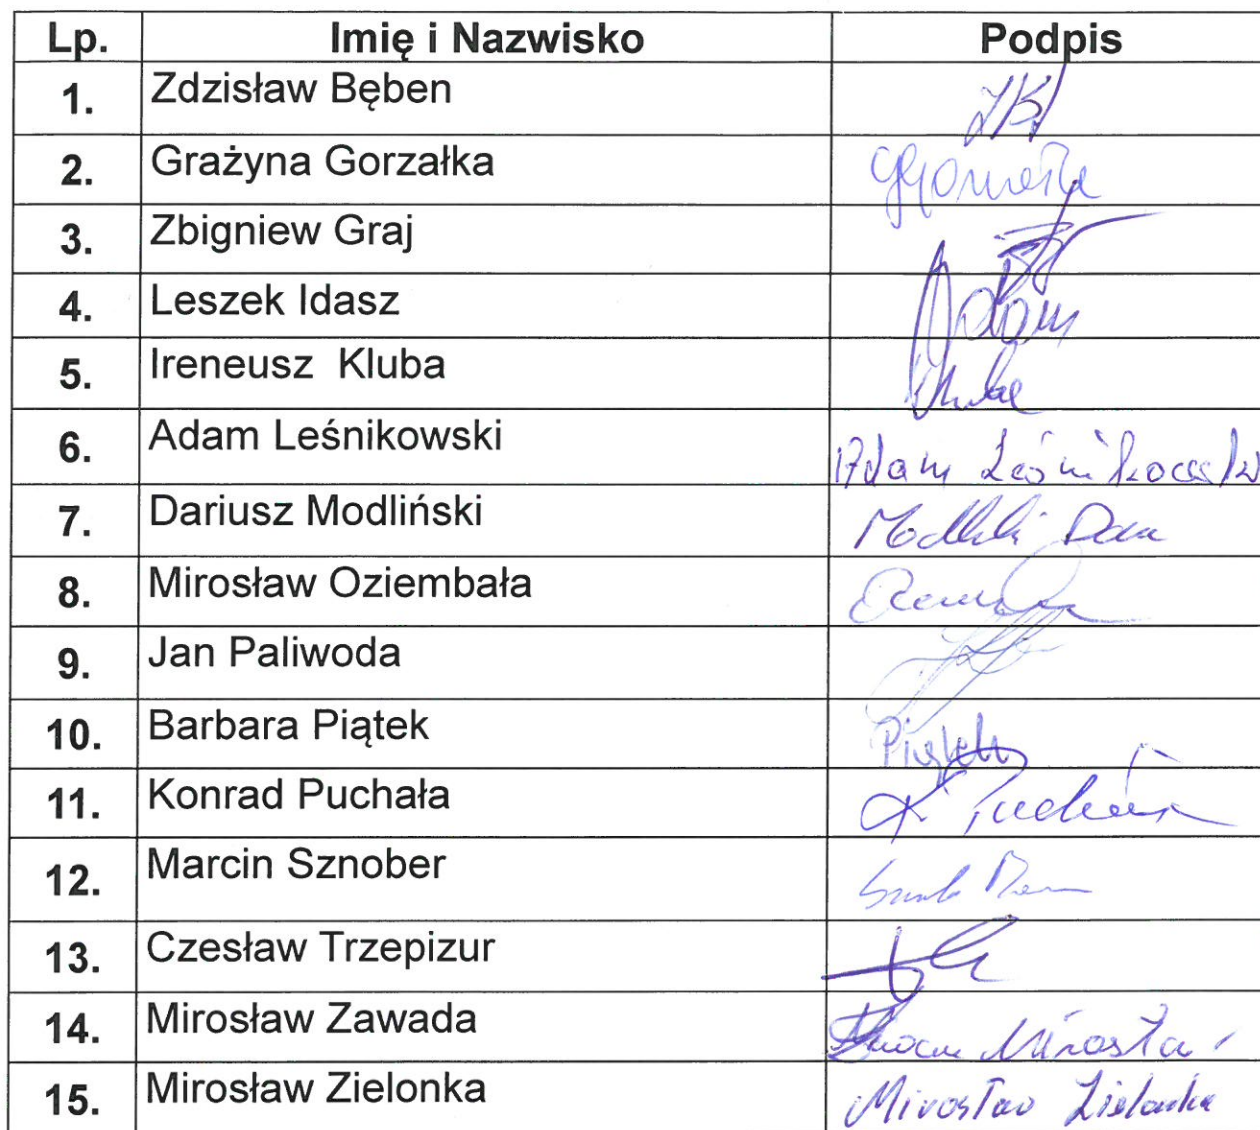 Lp. Imię i Nazwisko Podpis
1. Zdzisław Bęben
2. Grażyna Gorzałka
3. Zbigniew Graj
4. Leszek Idasz
5. Ireneusz Kluba
6. Adam Leśnikowski Adam Leśnikowski
7. Dariusz Modliński
8. Mirosław Oziembała
9. Jan Paliwoda
10. Barbara Piątek Piątek
11. Konrad Puchała K Puchała
12. Marcin Sznober
13. Czesław Trzepizur
14. Mirosław Zawada
15. Mirosław Zielonka Mirosław Zielonka